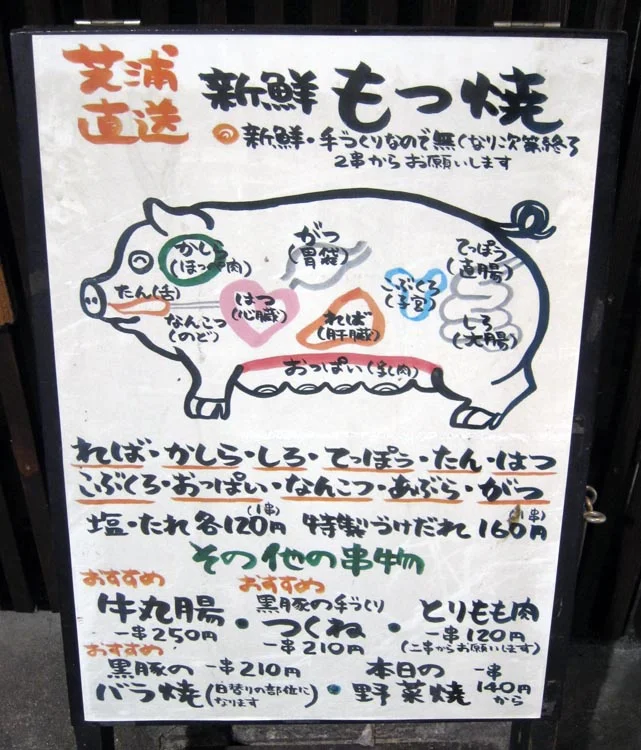 芝浦
直送
新鮮 もつ焼
新鮮・手づくりなので無くなり次第終了
2串からお願いします
かしら
(ほっぺ肉)
がつ
(胃袋)
てっぽう
(直腸)
たん(舌)
こぶくろ
(子宮)
はつ
(心臓)
なんこつ
(のど)
れば
(肝臓)
しろ
(大腸)
おっぱい(乳肉)
れば・かしら・しろ・てっぽう・たん・はつ
こぶくろ・おっぱい・なんこつ・あぶら・がつ
塩・たれ各120円(1串) 特製づけだれ160円(1串)
その他の串物
おすすめ
牛丸腸
一串250円
おすすめ
黒豚の手づくり
・つくね・
一串210円
とりもも肉
一串120円
(二串からお願いします)
おすすめ
黒豚の 一串210円
バラ焼(日替りの部位になります)
・
本日の 一串
野菜焼 140円から